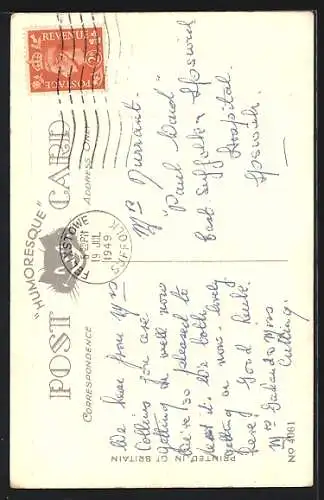 "HUMORESQUE"
POST CARD
CORRESPONDENCE
ADDRESS ONLY
POSTAGE
REVENUE
FELIXSTOWE
19 JUL
1949
SUFFOLK
We hear from Mrs
Collins you are
getting on well now
we're so pleased to
hear it. We both
getting on now. lovely
here! Good luck,
Mr & Mrs
Cutting.
Mr Durrant.
"Paul Ward"
East Suffolk & Ipswich
Hospital.
Ipswich.
PRINTED IN GT BRITAIN
NO 4081